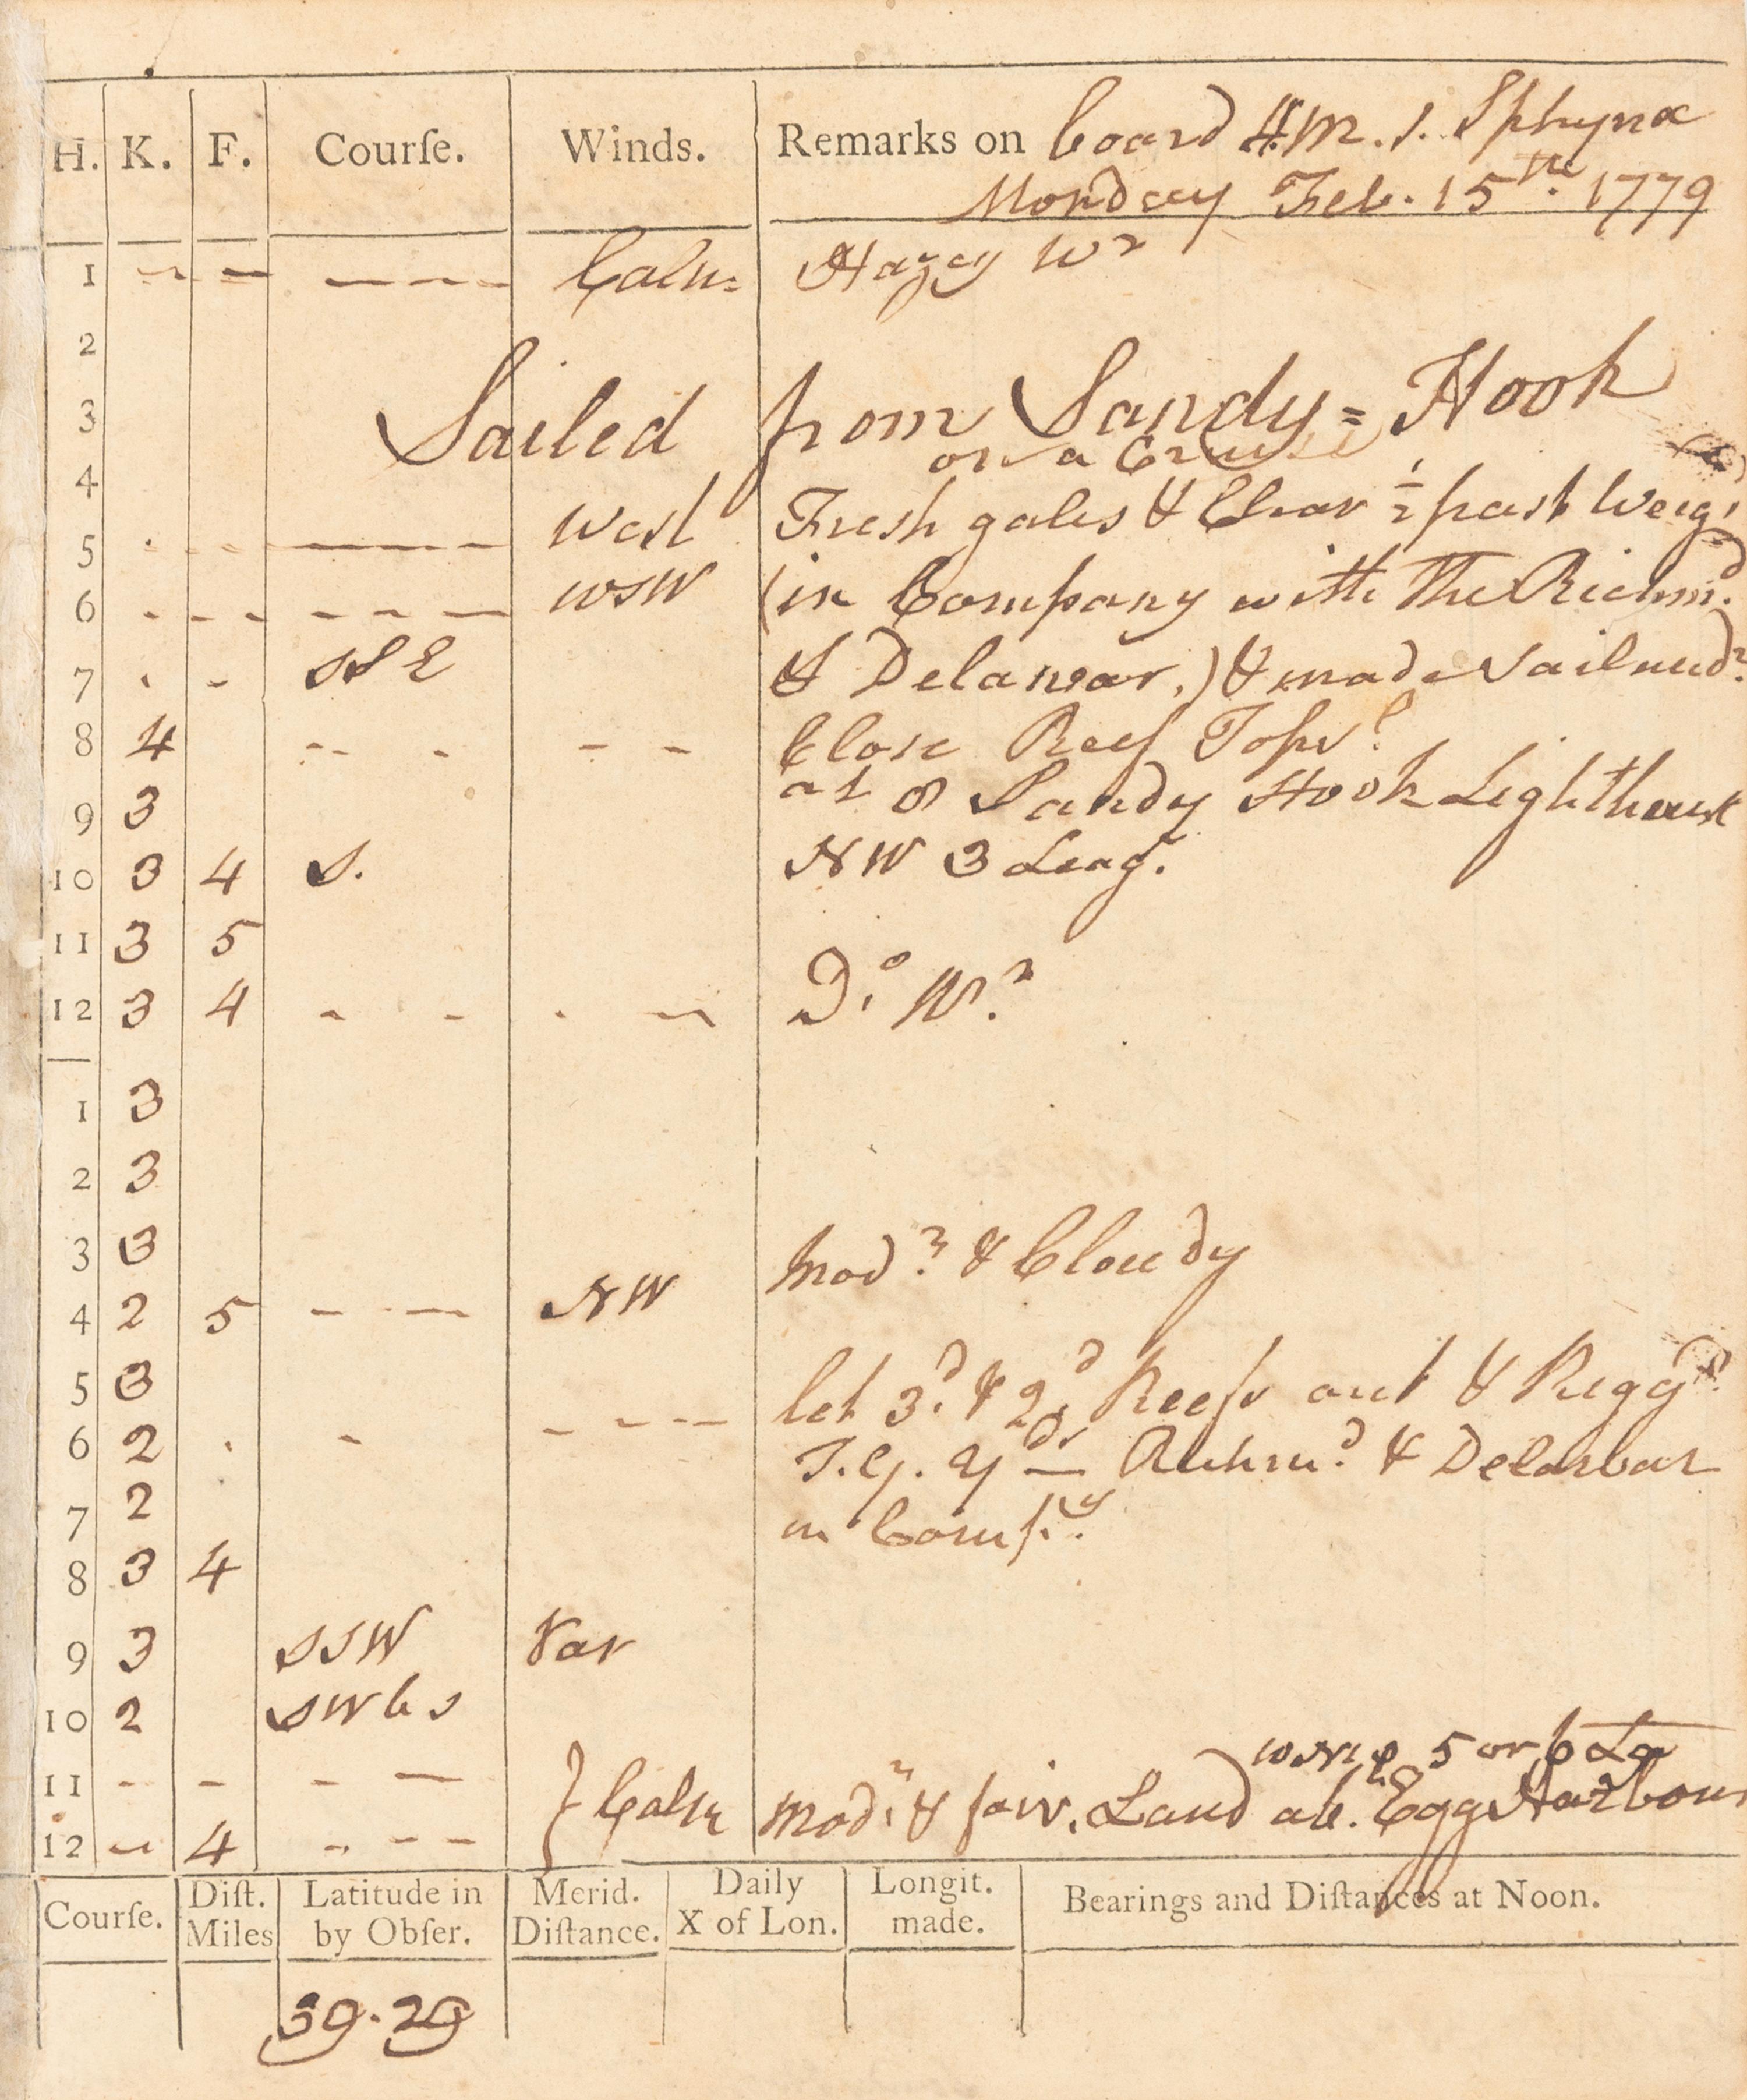 H. K. F. Courſe. Winds. Remarks on board H.M.S. Sphynx
Monday Feb. 15th. 1779
1 - - - - - Calm Hazey Wr
2
3 Sailed from Sandy = Hook
on a Cruise
4
5 - - - West Fresh gales & Clear ½ past Weigd
6 - - - - - WSW (in Company with The Richmd.
7 - - SSE & Delawar,) & made Sail undr.
8 4 - - - - - Close Reef Tops.l
9 3 at 8 Sandy Hook Lighthouse
10 3 4 S. NW 3 Leags.
11 3 5
12 3 4 - - - - Do. Wr.
1 3
2 3
3 3 Modr. & Cloudy
4 2 5 - - - NW
5 3 let 3d. & 2d. Reefs out & Riggd.
6 2 - - - - - T.G. Yds - Richmd. & Delawar
7 2 in Compy.
8 3 4
9 3 SSW Var
10 2 SWbS
WNW 5 or 6 La
11 - - - - } Calm Modr. & fair. Land ab. Egg Harbour
12 - 4 - - -
Courſe. Diſt. Miles Latitude in by Obſer. Merid. Diſtance. Daily X of Lon. Longit. made. Bearings and Diſtances at Noon.
39.29